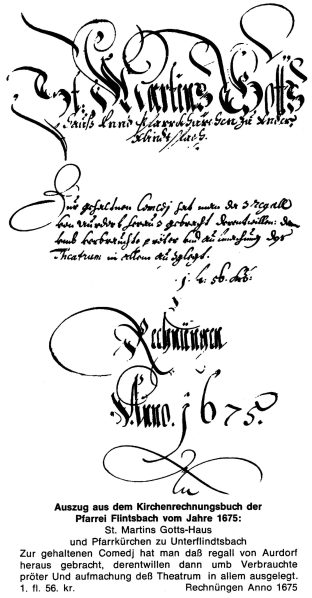 St. Martins Gotts
Hauß Unnd Pfarrkhürchen zu Under
flindtspach.
Zur gehaltnen Comedj hat man daß regall
von Aurdorf heraus gebracht derentwillen dan
umb verbrauchte pröter Und aufmachung deß
Theatrum in allem außglegt.
1 fl. 56 kr.
Rechnüngen
Anno. 1675.
Auszug aus dem Kirchenrechnungsbuch der
Pfarrei Flintsbach vom Jahre 1675:
St. Martins Gotts-Haus
und Pfarrkürchen zu Unterflindtsbach
Zur gehaltenen Comedj hat man daß regall von Aurdorf
heraus gebracht, derentwillen dann umb Verbrauchte
pröter Und aufmachung deß Theatrum in allem ausgelegt.
1. fl. 56. kr. Rechnüngen Anno 1675